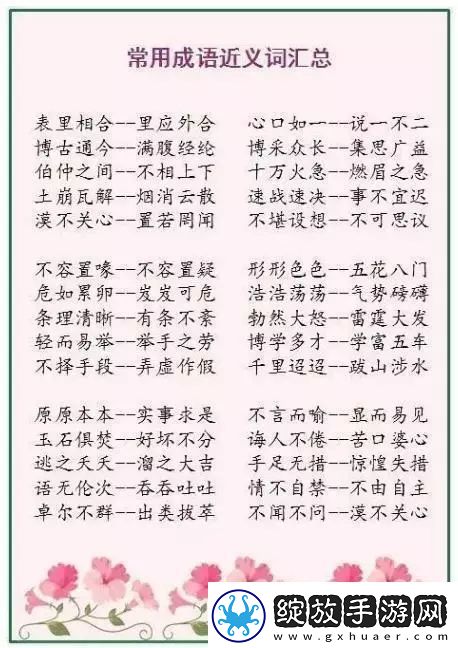 常用成语近义词汇总
表里相合--里应外合 心口如一--说一不二
博古通今--满腹经纶 博采众长--集思广益
伯仲之间--不相上下 十万火急--燃眉之急
土崩瓦解--烟消云散 速战速决--事不宜迟
漠不关心--置若罔闻 不堪设想--不可思议
不容置喙--不容置疑 形形色色--五花八门
危如累卵--岌岌可危 浩浩荡荡--气势磅礴
条理清晰--有条不紊 勃然大怒--雷霆大发
轻而易举--举手之劳 博学多才--学富五车
不择手段--弄虚作假 千里迢迢--跋山涉水
原原本本--实事求是 不言而喻--显而易见
玉石俱焚--好坏不分 诲人不倦--苦口婆心
逃之夭夭--溜之大吉 手足无措--惊惶失措
语无伦次--吞吞吐吐 情不自禁--不由自主
卓尔不群--出类拔萃 不闻不问--漠不关心
绽放手游网
www.gxhuaer.com